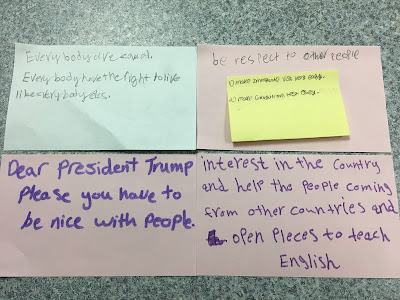 Every body are equal.
Every body have the right to live
like every body els.
be respect to other people
1) make visa very easy.
2) make test easy.
Dear President Trump
Please you have to
be nice with people.
interest in the Country
and help the people coming
from other countries and
open Pleces to teach
English